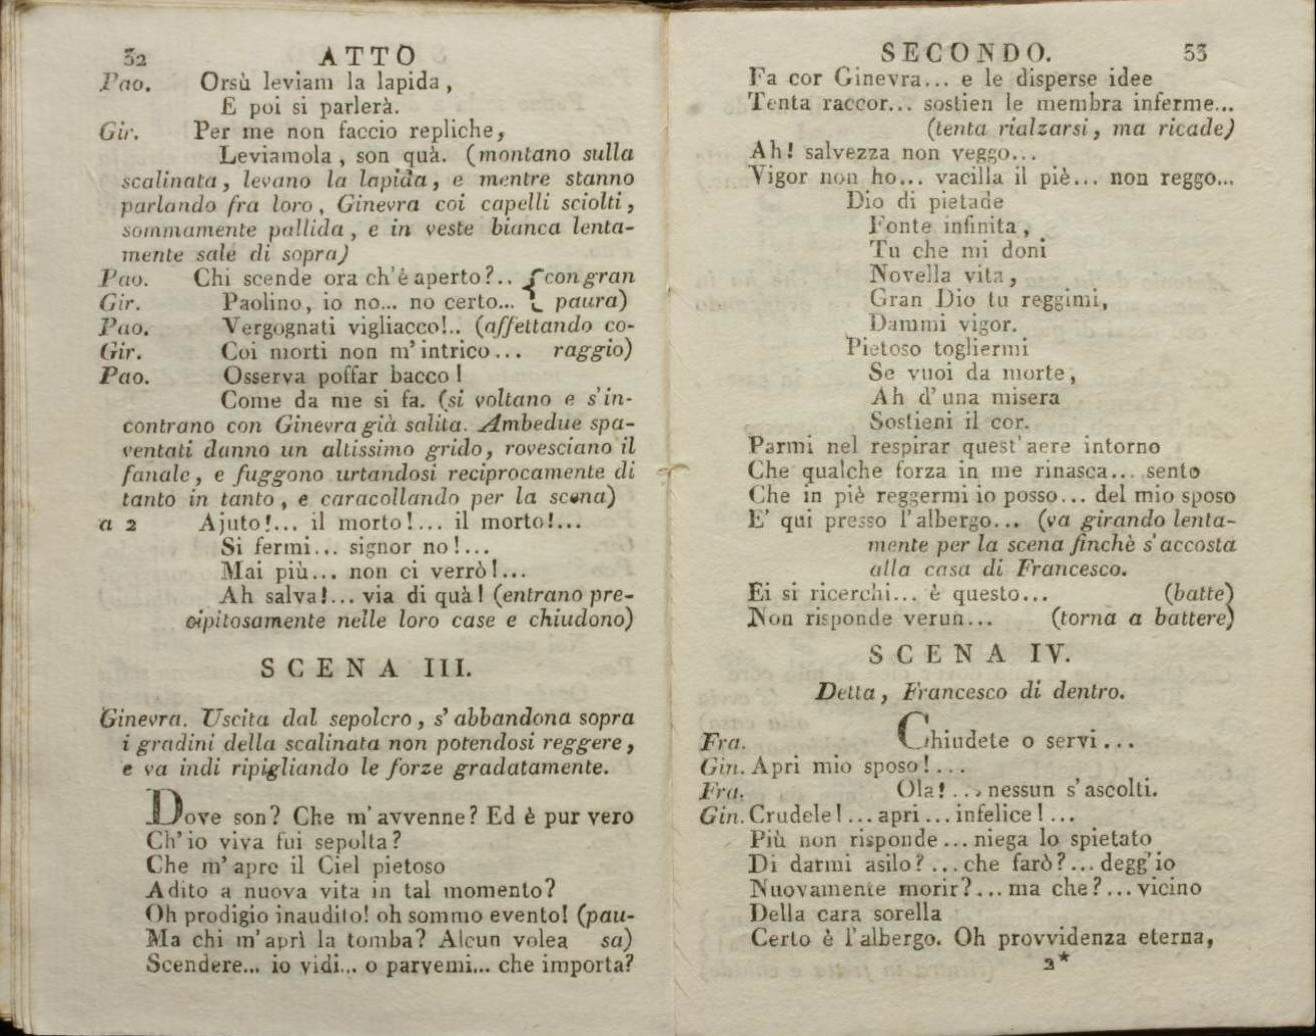 32 ATTO
Pao. Orsù leviam la lapida,
E poi si parlerà.
Gir. Per me non faccio repliche,
Leviamola, son quà. (montano sulla
scalinata, levano la lapida, e mentre stanno
parlando fra loro, Ginevra coi capelli sciolti,
sommamente pallida, e in veste bianca lenta-
mente sale di sopra)
Pao. Chi scende ora ch'è aperto?.. { con gran
Gir. Paolino, io no... no certo... { paura)
Pao. Vergognati vigliacco!.. (affettando co-
Gir. Coi morti non m'intrico... raggio)
Pao. Osserva poffar bacco!
Come da me si fa. (si voltano e s'in-
contrano con Ginevra già salita. Ambedue spa-
ventati danno un altissimo grido, rovesciano il
fanale, e fuggono urtandosi reciprocamente di
tanto in tanto, e caracollando per la scena)
a 2 Ajuto!... il morto!... il morto!...
Si fermi... signor no!...
Mai più... non ci verrò!...
Ah salva!... via di quà! (entrano pre-
cipitosamente nelle loro case e chiudono)
SCENA III.
Ginevra. Uscita dal sepolcro, s'abbandona sopra
i gradini della scalinata non potendosi reggere,
e va indi ripigliando le forze gradatamente.
Dove son? Che m'avvenne? Ed è pur vero
Ch'io viva fui sepolta?
Che m'apre il Ciel pietoso
Adito a nuova vita in tal momento?
Oh prodigio inaudito! oh sommo evento! (pau-
Ma chi m'aprì la tomba? Alcun volea sa)
Scendere... io vidi... o parvemi... che importa?
SECONDO. 53
Fa cor Ginevra... e le disperse idee
Tenta raccor... sostien le membra inferme...
(tenta rialzarsi, ma ricade)
Ah! salvezza non veggo...
Vigor non ho... vacilla il piè... non reggo...
Dio di pietade
Fonte infinita,
Tu che mi doni
Novella vita,
Gran Dio tu reggimi,
Dammi vigor.
Pietoso togliermi
Se vuoi da morte,
Ah d'una misera
Sostieni il cor.
Parmi nel respirar quest'aere intorno
Che qualche forza in me rinasca... sento
Che in piè reggermi io posso... del mio sposo
E' qui presso l'albergo... (va girando lenta-
mente per la scena finchè s'accosta
alla casa di Francesco.
Ei si ricerchi... è questo... (batte)
Non risponde verun... (torna a battere)
SCENA IV.
Detta, Francesco di dentro.
Fra. Chiudete o servi...
Gin. Apri mio sposo!...
Fra. Ola!... nessun s'ascolti.
Gin. Crudele!... apri... infelice!...
Più non risponde... niega lo spietato
Di darmi asilo?... che farò?... degg'io
Nuovamente morir?... ma che?... vicino
Della cara sorella
Certo è l'albergo. Oh provvidenza eterna,
2*